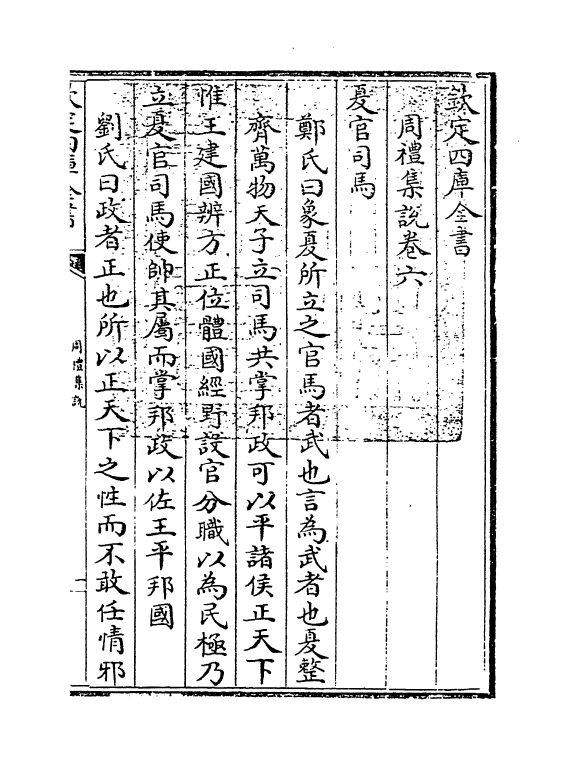 欽定四庫全書
周禮集說卷六
夏官司馬
鄭氏曰象夏所立之官馬者武也言為武者也夏整
齊萬物天子立司馬共掌邦政可以平諸侯正天下
惟王建國辨方正位體國經野設官分職以為民極乃
立夏官司馬使帥其屬而掌邦政以佐王平邦國
劉氏曰政者正也所以正天下之性而不敢任情邪
欽定四庫全書
周禮集說